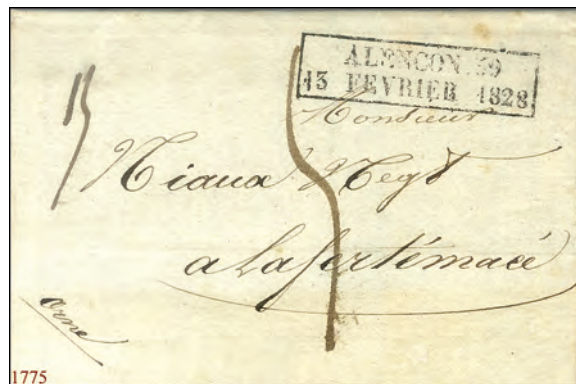 ALENCON. 39
13 FEVRIER 1828
Monsieur
Niaux Negt
a lafertémacé
orne
1775